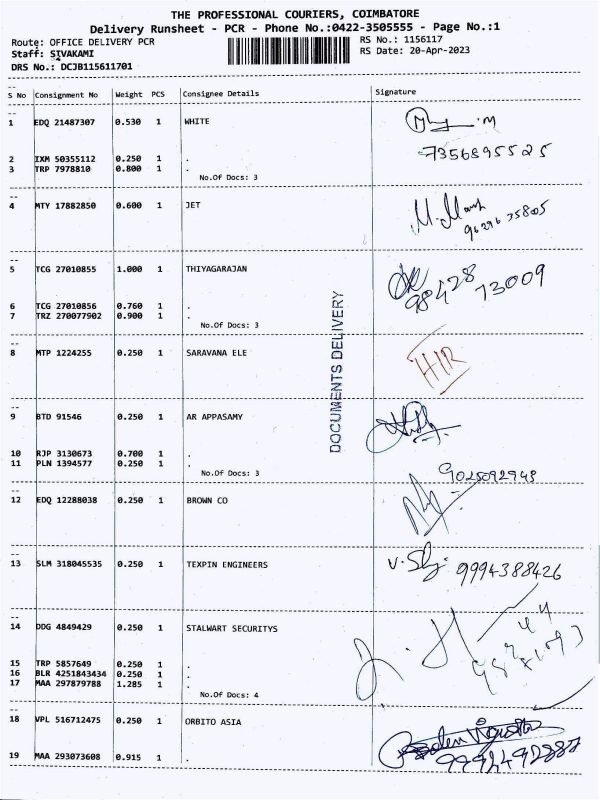 THE PROFESSIONAL COURIERS, COIMBATORE
Delivery Runsheet - PCR - Phone No.:0422-3505555 - Page No.:1
Route: OFFICE DELIVERY PCR
RS No.: 1156117
Staff: SIVAKAMI
RS Date: 20-Apr-2023
DRS No.: DCJB115611701
--
S No Consignment No Weight PCS Consignee Details Signature
--
1 EDQ 21487307 0.530 1 WHITE
7356895525
2 IXM 50355112 0.250 1 .
3 TRP 7978810 0.800 1 .
No.Of Docs: 3
--
4 MTY 17882850 0.600 1 JET
96296 35805
--
5 TCG 27010855 1.000 1 THIYAGARAJAN
98428 73009
6 TCG 27010856 0.760 1 .
7 TRZ 270077902 0.900 1 .
No.Of Docs: 3
DOCUMENTS DELIVERY
--
8 MTP 1224255 0.250 1 SARAVANA ELE
--
9 BTD 91546 0.250 1 AR APPASAMY
10 RJP 3130673 0.700 1 .
11 PLN 1394577 0.250 1 .
No.Of Docs: 3
9025092943
--
12 EDQ 12288038 0.250 1 BROWN CO
--
13 SLM 318045535 0.250 1 TEXPIN ENGINEERS
9994388426
--
14 DDG 4849429 0.250 1 STALWART SECURITYS
15 TRP 5857649 0.250 1 .
16 BLR 4251843434 0.250 1 .
17 MAA 297879788 1.285 1 .
No.Of Docs: 4
--
18 VPL 516712475 0.250 1 ORBITO ASIA
19 MAA 293073608 0.915 1 .